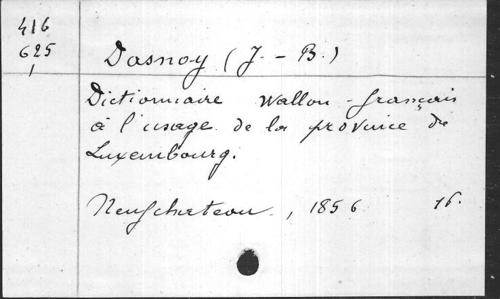 416
625
1
Dasnoy (J. - B.)
Dictionnaire Wallon-français
à l'usage de la province du
Luxembourg.
Neufchateau, 1856 16.